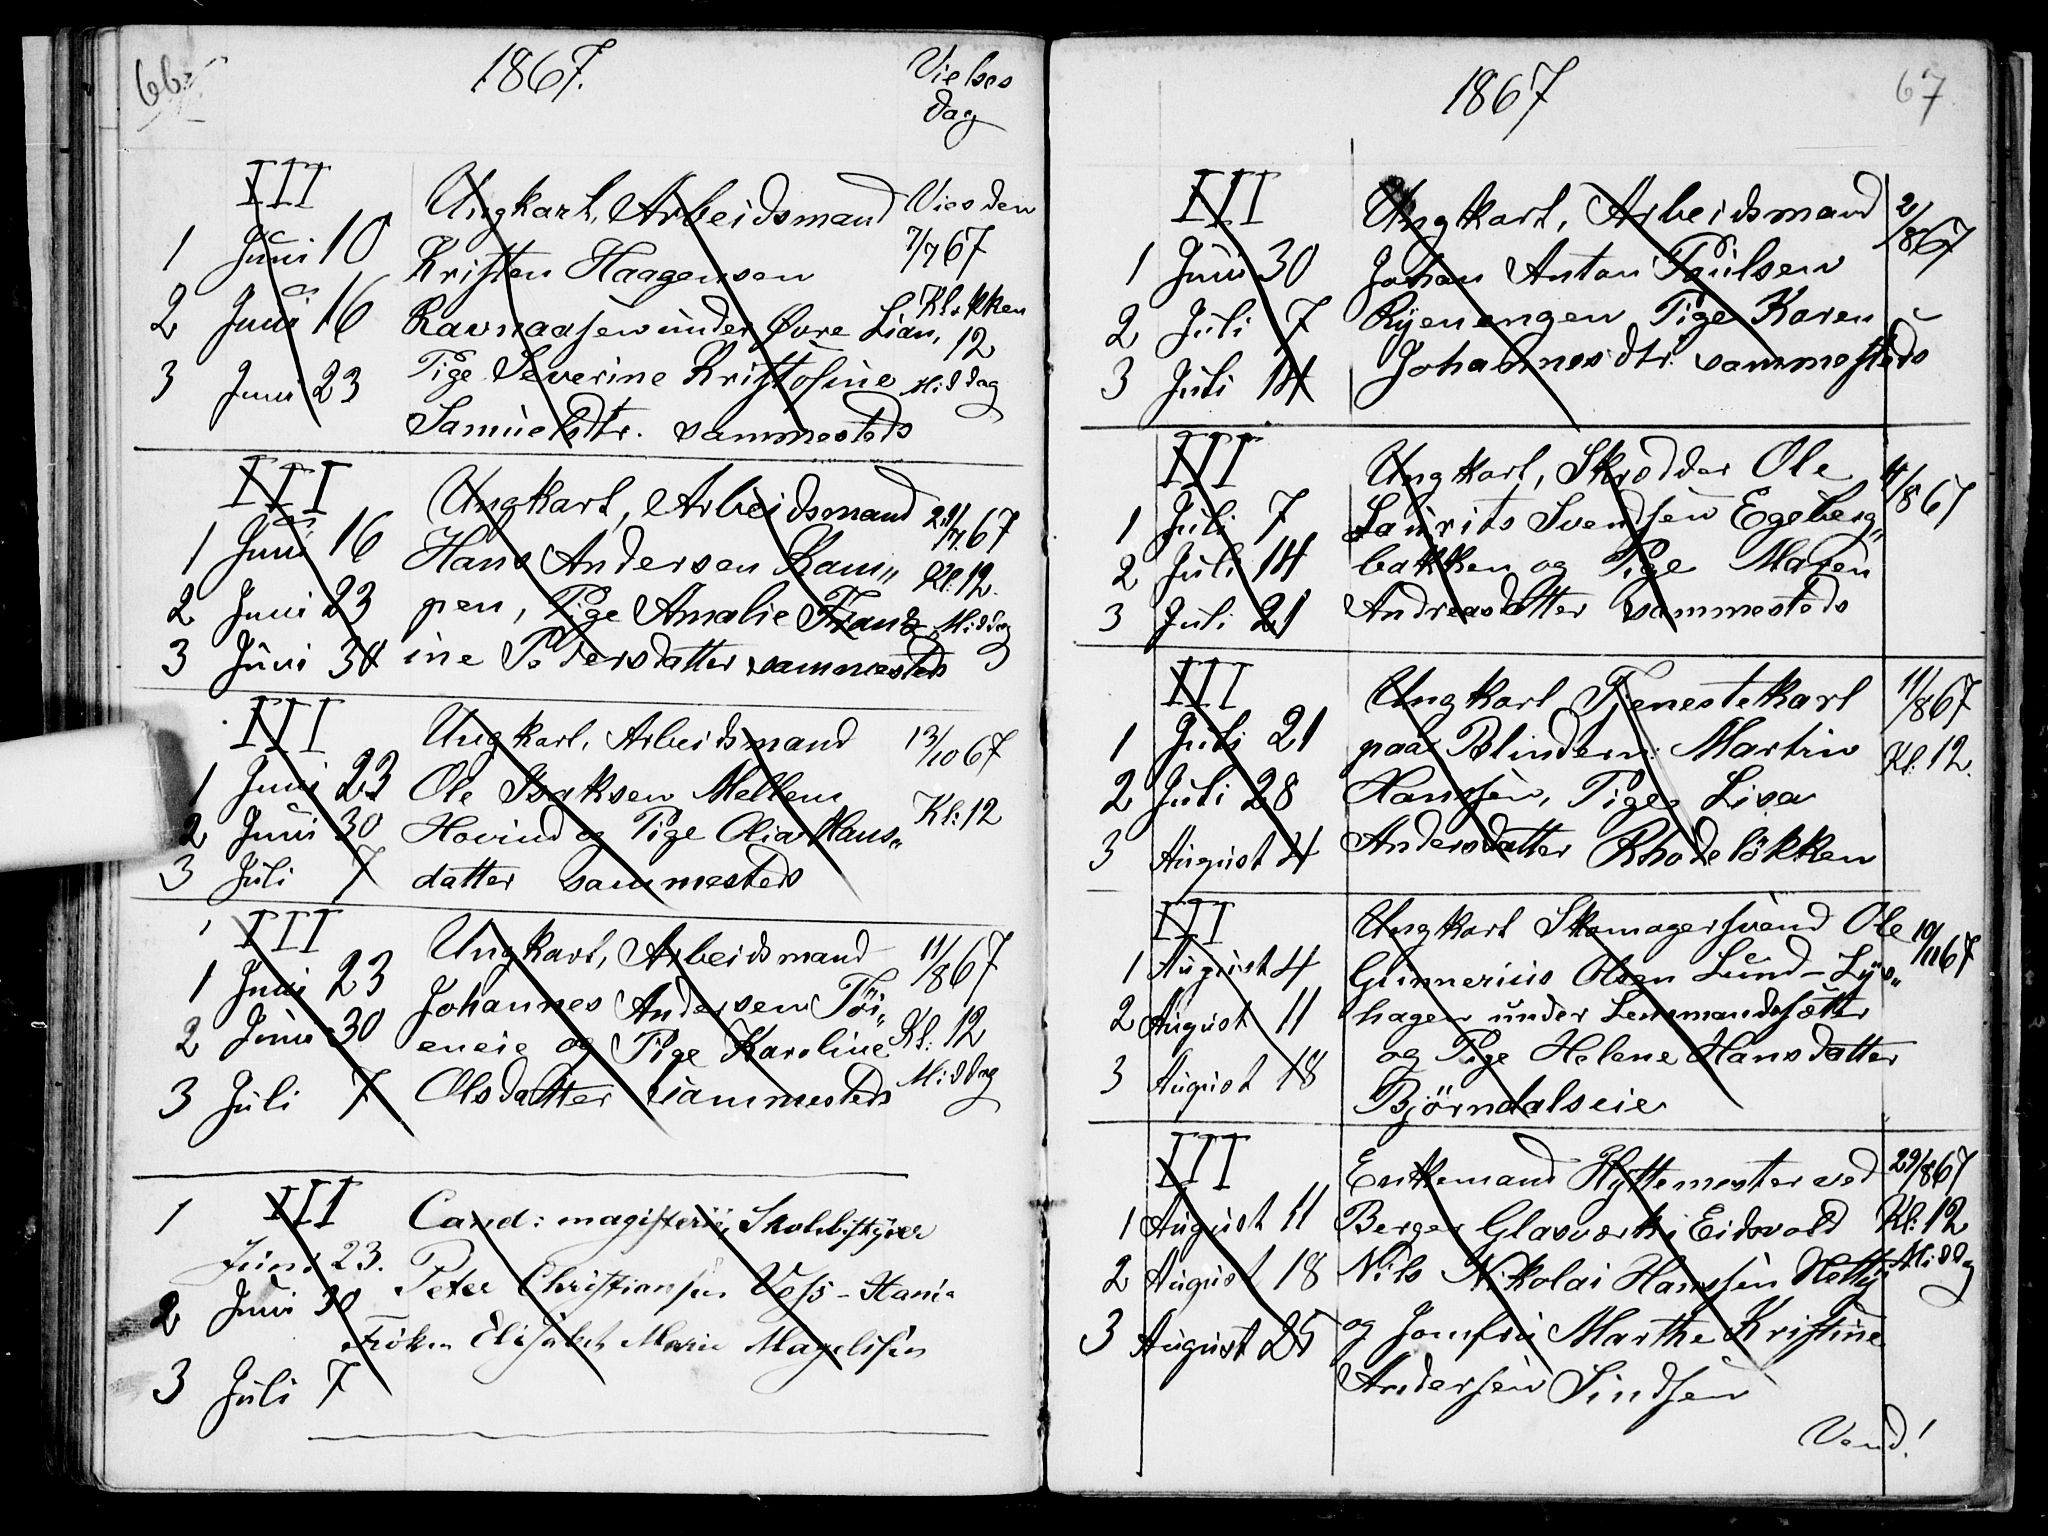 66
1867.
Vielses
dag
III
1 Juni 10
2 Juni 16
3 Juni 23
Ungkarl, Arbeidsmand
Kristen Haagensen
Ravnaasen under Øvre Lian,
Pige Severine Kristofine
Samuelsdtr. sammesteds
Vies den
7/7 67
Klokken
12
Middag
III
1 Juni 16
2 Juni 23
3 Juni 30
Ungkarl, Arbeidsmand
Hans Andersen Kam„
pen, Pige Amalie Franz
ine Pedersdatter sammesteds
21/7 67
Kl. 12.
Middag
III
1 Juni 23
2 Juni 30
3 Juli 7
Ungkarl, Arbeidsmand
Ole Isaksen Mellem
Hovind og Pige Olia Hans„
datter sammesteds
13/10 67
Kl: 12
III
1 Juni 23
2 Juni 30
3 Juli 7
Ungkarl, Arbeidsmand
Johannes Andersen Töi„
eneie og Pige Karoline
Olsdatter sammesteds
11/8 67
Kl: 12
Middag
III
1
Juni 23.
2 Juni 30
3 Juli 7
Cand: magisterii, Skolebestyrer
Peter Christiansen Voss -
Fröken Elisabeth Marie Magelssen
1867
67
III
1 Juni 30
2 Juli 7
3 Juli 14
Ungkarl, Arbeidsmand
Johan Anton Paulsen
Ryenengen, Pige Karen
Johannesdtr. sammesteds
2/8 67
III
1 Juli 7
2 Juli 14
3 Juli 21
Ungkarl, Skrædder Ole
Laurits Svendsen Egeberg„
bakken og Pige Maren
Andreasdatter sammesteds
4/8 67
III
1 Juli 21
2 Juli 28
3 August 4
Ungkarl Tjenestekarl
paa Blindern: Martin
Hanssen, Pige Lisa
Andersdatter Rhodelökken
11/8 67
Kl: 12.
III
1 August 4
2 August 11
3 August 18
Ungkarl Skomagersvend Ole
Gunnerius Olsen Lund - Lys„
hagen under Lensmandsætter
og Pige Helene Hansdatter
Björndalseie
10/11 67
III
1 August 11
2 August 18
3 August 25
Enkemand Hyttemester ved
Berger Glasværk i Eidsvold
Nils Nikolai Hanssen
og Jomfru Marthe Kristine
Andersen Sindsen
29/8 67
Kl: 12
Middag
Vend!